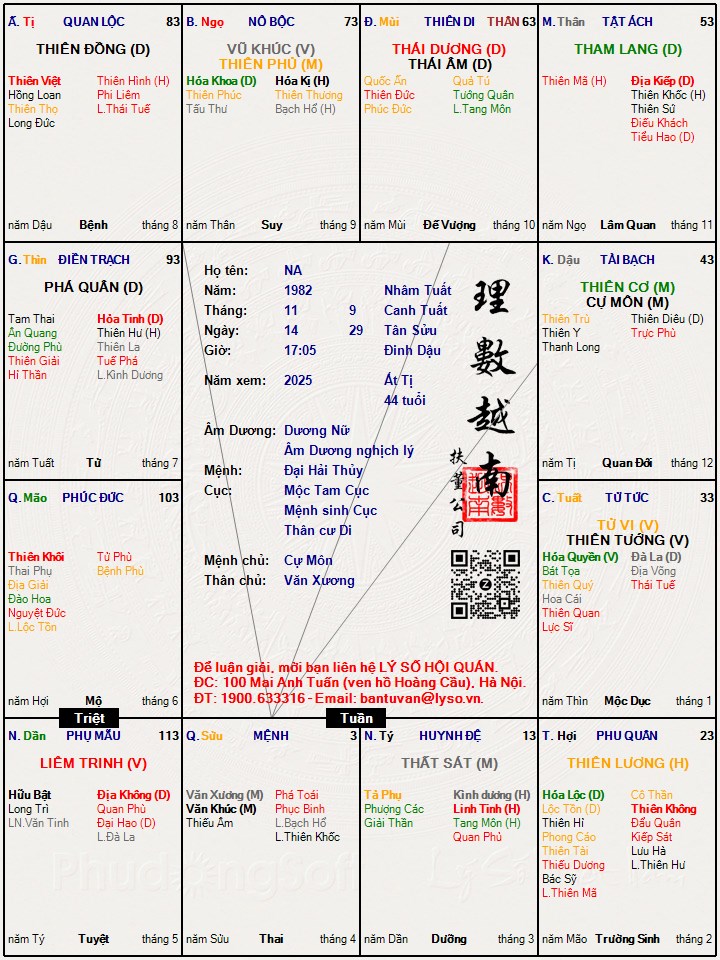 Ấ. Tị QUAN LỘC 83
THIÊN ĐỒNG (D)
Thiên Việt Thiên Hình (H)
Hồng Loan Phi Liêm
Thiên Thọ L.Thái Tuế
Long Đức
năm Dậu Bệnh tháng 8
B. Ngọ NÔ BỘC 73
VŨ KHÚC (V)
THIÊN PHỦ (M)
Hóa Khoa (D) Hóa Kị (H)
Thiên Phúc Thiên Thương
Tấu Thư Bạch Hổ (H)
năm Thân Suy tháng 9
Đ. Mùi THIÊN DI THÂN 63
THÁI DƯƠNG (D)
THÁI ÂM (D)
Quốc Ấn Quả Tú
Thiên Đức Tướng Quân
Phúc Đức L.Tang Môn
năm Mùi Đế Vượng tháng 10
M. Thân TẬT ÁCH 53
THAM LANG (D)
Thiên Mã (H) Địa Kiếp (D)
Thiên Khốc (H)
Thiên Sứ
Điếu Khách
Tiểu Hao (D)
năm Ngọ Lâm Quan tháng 11
G. Thìn ĐIỀN TRẠCH 93
PHÁ QUÂN (D)
Tam Thai Hỏa Tinh (D)
Ân Quang Thiên Hư (H)
Đường Phù Thiên La
Thiên Giải Tuế Phá
Hỉ Thần L.Kình Dương
năm Tuất Tử tháng 7
Họ tên: NA
Năm: 1982 Nhâm Tuất
Tháng: 11 9 Canh Tuất
Ngày: 14 29 Tân Sửu
Giờ: 17:05 Đinh Dậu
Năm xem: 2025 Ất Tị
44 tuổi
Âm Dương: Dương Nữ
Âm Dương nghịch lý
Mệnh: Đại Hải Thủy
Cục: Mộc Tam Cục
Mệnh sinh Cục
Thân cư Di
Mệnh chủ: Cự Môn
Thân chủ: Văn Xương
理
數
越
南
扶
董
公
司
Để luận giải, mời bạn liên hệ LÝ SỐ HỘI QUÁN.
ĐC: 100 Mai Anh Tuấn (ven hồ Hoàng Cầu), Hà Nội.
ĐT: 1900.633316 - Email: bantuvan@lyso.vn.
K. Dậu TÀI BẠCH 43
THIÊN CƠ (M)
CỰ MÔN (M)
Thiên Trù Thiên Diêu (D)
Thiên Y Trực Phù
Thanh Long
năm Tị Quan Đới tháng 12
Q. Mão PHÚC ĐỨC 103
Thiên Khôi Tử Phù
Thai Phụ Bệnh Phù
Địa Giải
Đào Hoa
Nguyệt Đức
L.Lộc Tồn
năm Hợi Mộ tháng 6
C. Tuất TỬ TỨC 33
TỬ VI (V)
THIÊN TƯỚNG (V)
Hóa Quyền (V) Đà La (D)
Bát Tọa Địa Võng
Thiên Quý Thái Tuế
Hoa Cái
Thiên Quan
Lực Sĩ
năm Thìn Mộc Dục tháng 1
Triệt
Tuần
N. Dần PHỤ MẪU 113
LIÊM TRINH (V)
Hữu Bật Địa Không (D)
Long Trì Quan Phù
LN.Văn Tinh Đại Hao (D)
L.Đà La
năm Tý Tuyệt tháng 5
Q. Sửu MỆNH 3
Văn Xương (M) Phá Toái
Văn Khúc (M) Phục Binh
Thiếu Âm L.Bạch Hổ
L.Thiên Khốc
năm Sửu Thai tháng 4
N. Tý HUYNH ĐỆ 13
THẤT SÁT (M)
Tả Phụ Kình dương (H)
Phượng Các Linh Tinh (H)
Giải Thần Tang Môn (H)
Quan Phủ
năm Dần Dưỡng tháng 3
T. Hợi PHU QUÂN 23
THIÊN LƯƠNG (H)
Hóa Lộc (D) Cô Thần
Lộc Tồn (D) Thiên Không
Thiên Hỉ Đẩu Quân
Phong Cáo Kiếp Sát
Thiên Tài Lưu Hà
Thiếu Dương L.Thiên Hư
Bác Sỹ
L.Thiên Mã
năm Mão Trường Sinh tháng 2